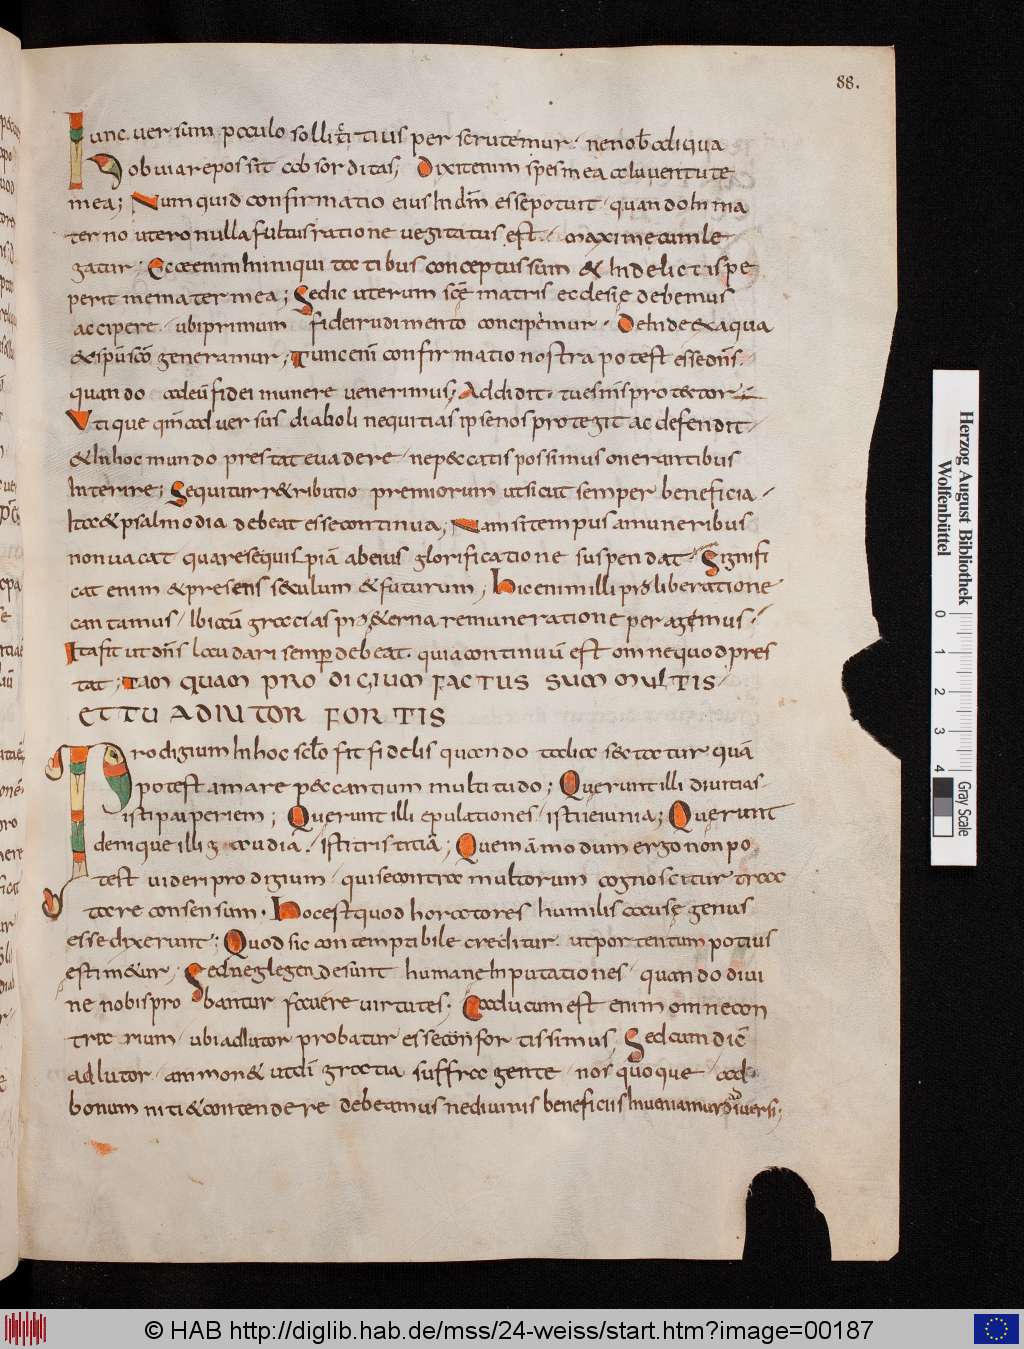 88.
hunc uersum paulo sollicitius perscrutemur. ne nob aliqua
obuiare possit absorditas; Dixit enim spes mea a iuuentute
mea; Numquid confirmatio eius In dm esse potuit. quando In ma
terno utero nulla fultus ratione uegitatus est. maxime cum le
gatur; Ecce enim In iniquitatibus conceptus sum & In delictis pe
perit me mater mea; Sed hic uterum sce matris ecclesie debemus
accipere. ubi primum fidei rudimento concipemur. Dehinc &aqua
&spu sco generamur; Tunc eni confirmatio nostra potest esse dns.
quando ad eu fidei munere uenerimus; Addidit. tu es ms protector
Vtique qm aduersus diaboli nequitias ipse nos protegit ac defendit
& In hoc mundo prestat euadere. ne peccatis possimus onerantibus
Interire; Sequitur r&ributio premiorum ut sicut semper beneficia
Ita & psalmodia debeat esse continua; Nam si tempus a muneribus
non uacat quare sequis piā ab eius glorificatione suspendat. Signifi
cat enim & presens seculum & futurum; Hic enim illi pro liberatione
cantamus. Ibi cū gracias pro &erna remuneratione peragemus.
Ita fit ut dns laudari semp debeat. quia continuū est omne quod pres
tat; TAM QUAM PRODIGIUM FACTUS SUM MULTIS
ET TU ADIUTOR FORTIS
Prodigium In hoc sclo fit fidelis quando talia sectatur quā
potest amare peccantium multitudo; Querunt illi diuitias
isti pauperiem; Querunt illi epulationes. isti ieiunia; Querunt
denique illi gaudia. isti tristitiā; Quemāmodum ergo non po
test uideri prodigium. qui se contra multorum cognoscitur trac
tare consensum. Hoc est quod horatores humilis cause genus
esse dixerunt; Quod sic contemptibile creditur. ut portentum potius
estim&ur; Sed neglegende sunt humane Inputationes. quando diui
ne nobis probantur fauere uirtutes; Caducum est enim omne con
trarium. ubi adIutor probatur esse confortissimus; Sed cum dic
adIutor. ammon& ut di gratia suffragente. nos quoque ad
bonum niti & contendere debeamus ne diuinis beneficiis Inueniamur diuersi;
Herzog August Bibliothek
Wolfenbüttel
0 1 2 3 4
Gray Scale
© HAB http://diglib.hab.de/mss/24-weiss/start.htm?image=00187